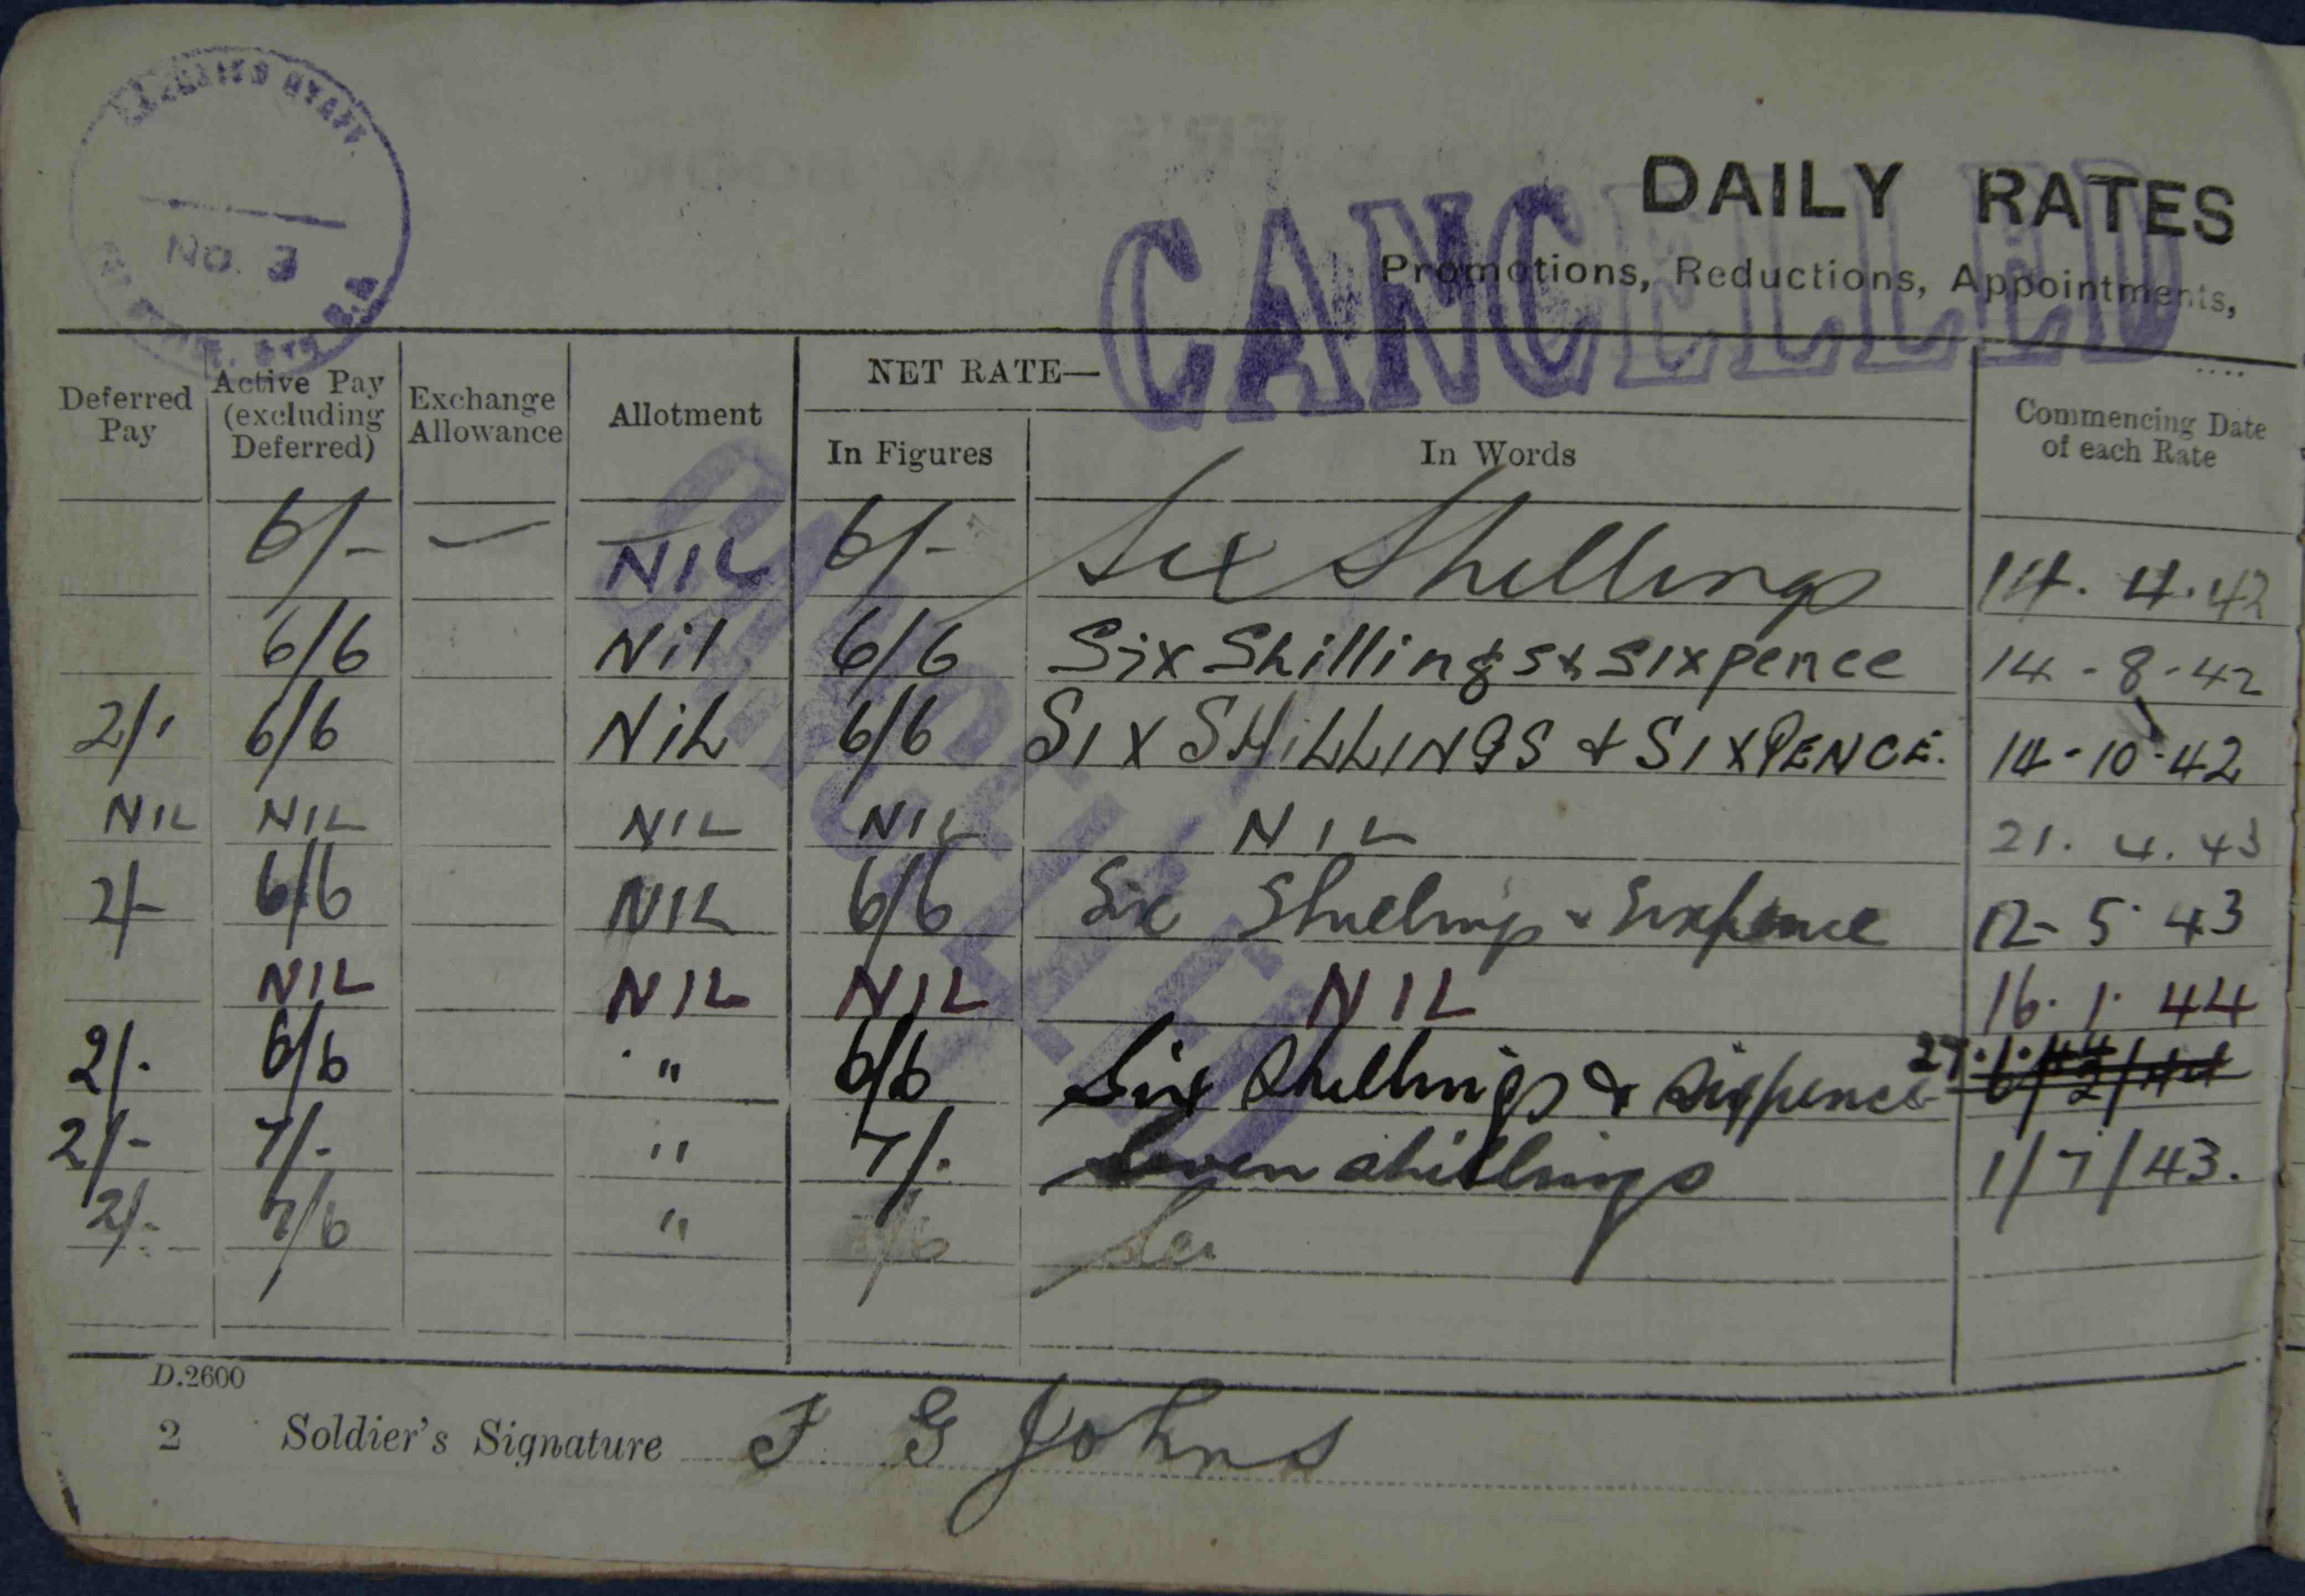 NO. 3
DAILY RATES
CANCELLED
Promotions, Reductions, Appointments,
NET RATE—
Deferred Pay
Active Pay (excluding Deferred)
Exchange Allowance
Allotment
In Figures
In Words
Commencing Date of each Rate
6/- — NIL 6/- Six Shillings 14. 4. 42
6/6 Nil 6/6 Six Shillings & sixpence 14 - 8 - 42
2/- 6/6 NiL 6/6 SIX SHiLLINGS & SIXPENCE. 14-10-42
NIL NIL NIL NIL NIL 21. 4. 43
2/- 6/6 NIL 6/6 Six Shillings & Sixpence 12- 5. 43
NIL NIL NIL NIL 16. 1. 44
2/- 6/6 " 6/6 Six Shillings & Sixpence 27.1.44
2/- 7/- " 7/- Seven shillings 1/7/43.
2/- 7/6 " 7/6
CANCELLED
D.2600
2 Soldier's Signature F G Johns